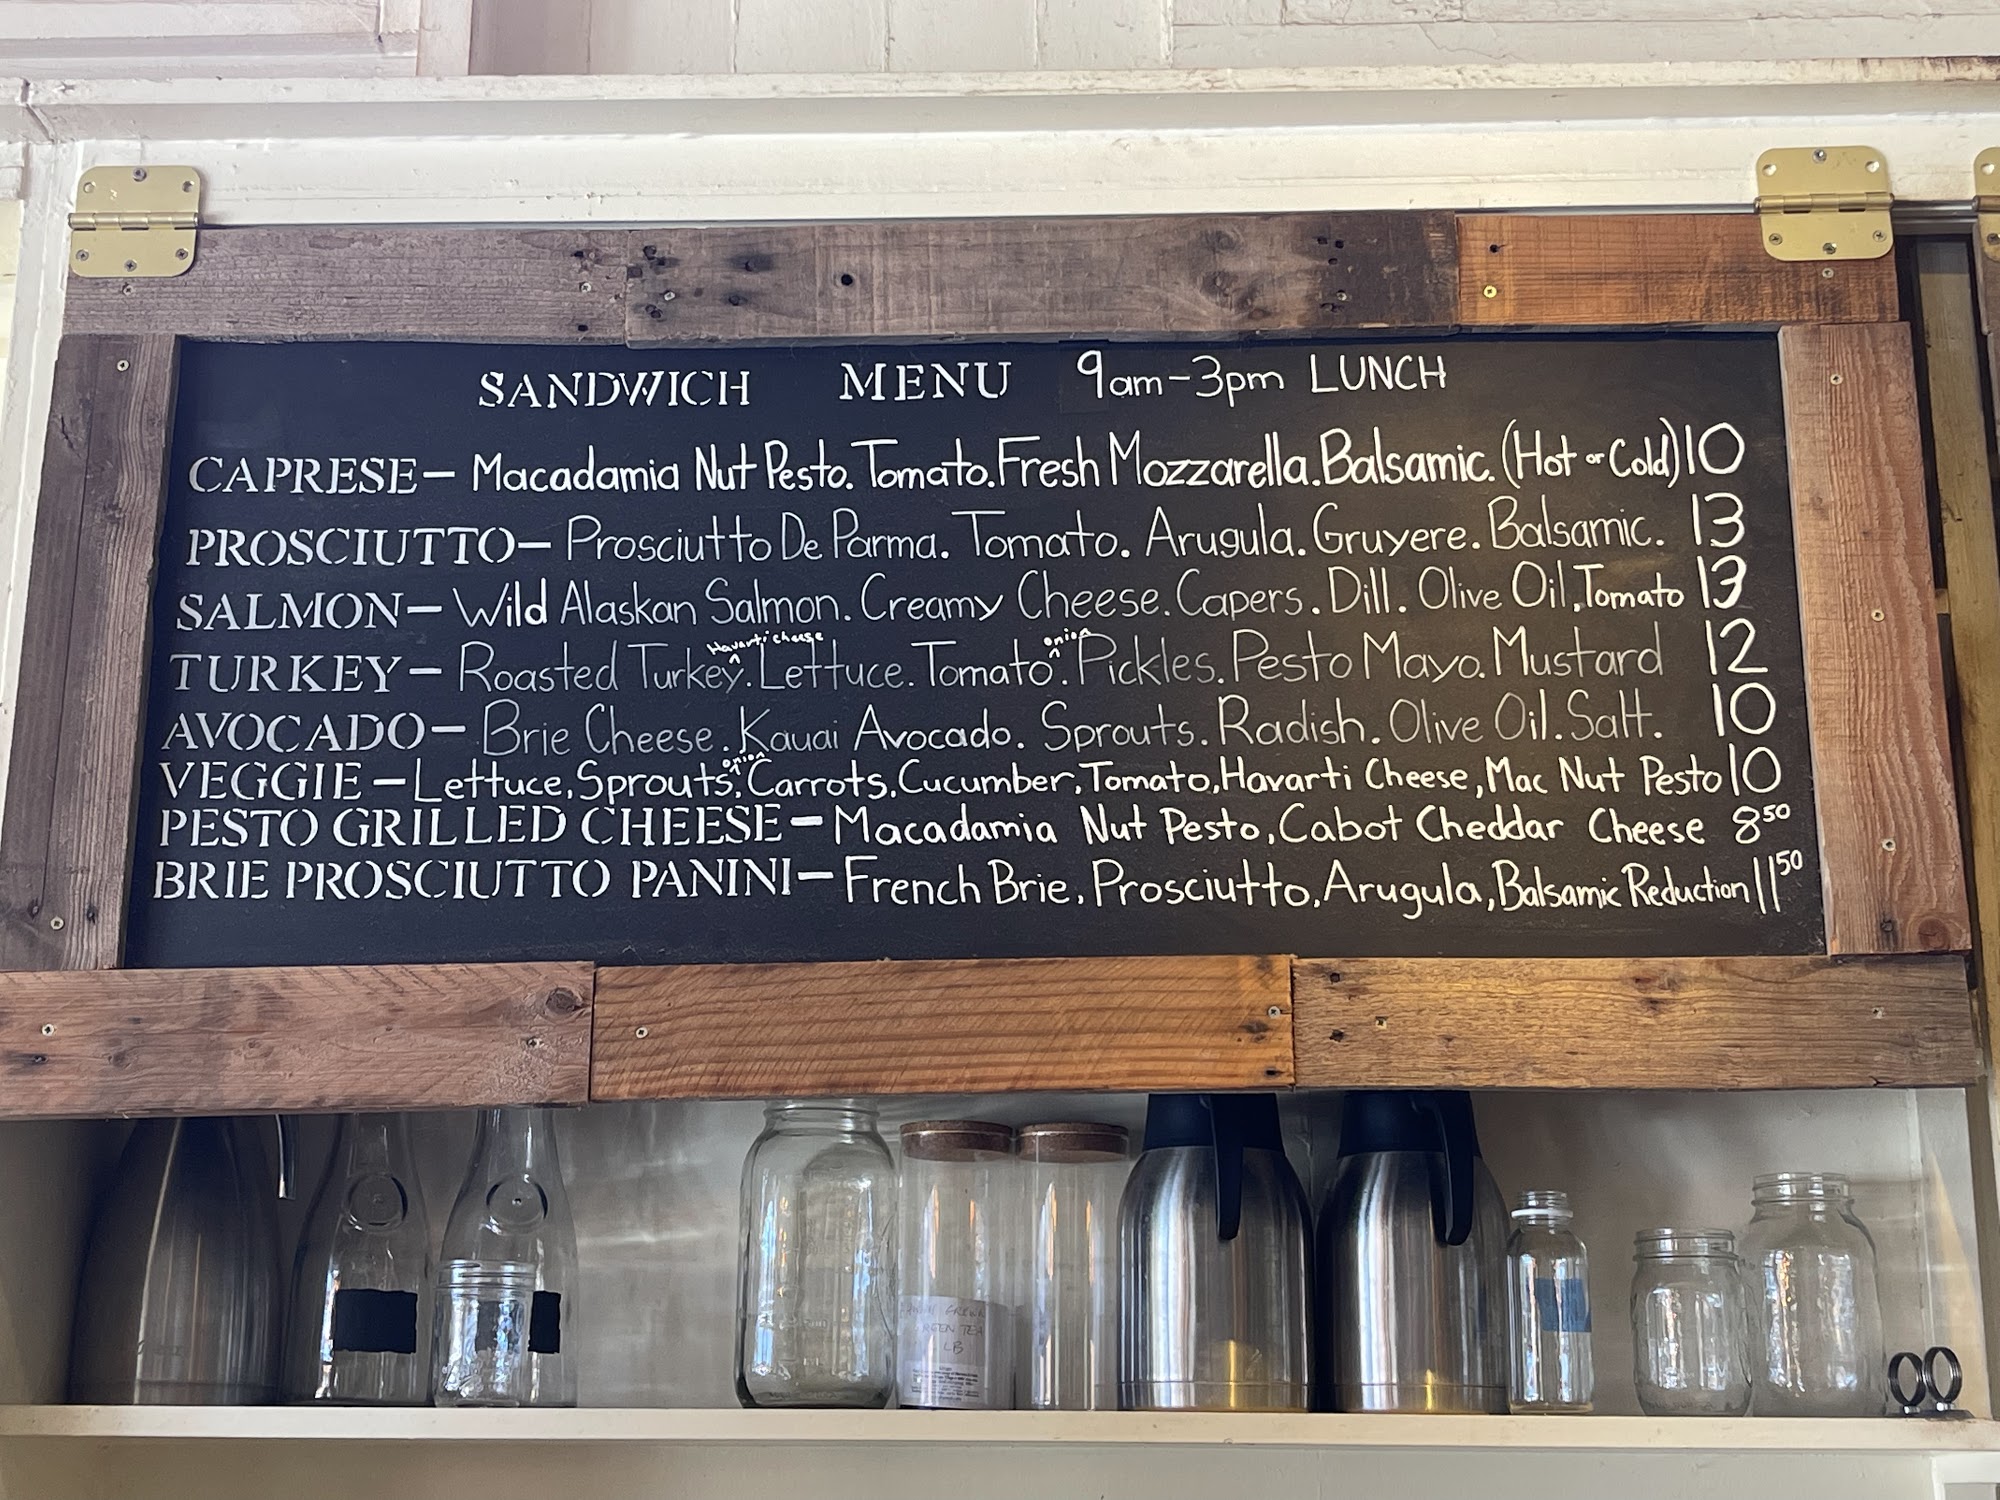 SANDWICH MENU 9am-3pm LUNCH
CAPRESE- Macadamia Nut Pesto. Tomato. Fresh Mozzarella. Balsamic. (Hot or Cold) 10
PROSCIUTTO- Prosciutto De Parma. Tomato. Arugula. Gruyere. Balsamic. 13
SALMON- Wild Alaskan Salmon. Creamy Cheese. Capers. Dill. Olive Oil, Tomato 13
TURKEY- Roasted Turkey ^ Havarti cheese. Lettuce. Tomato ^ onion. Pickles. Pesto Mayo. Mustard 12
AVOCADO- Brie Cheese. Kauai Avocado. Sprouts. Radish. Olive Oil. Salt. 10
VEGGIE- Lettuce, Sprouts, ^ onion Carrots, Cucumber, Tomato, Havarti Cheese, Mac Nut Pesto 10
PESTO GRILLED CHEESE- Macadamia Nut Pesto, Cabot Cheddar Cheese 8 50
BRIE PROSCIUTTO PANINI- French Brie, Prosciutto, Arugula, Balsamic Reduction 11 50
GREEN TEA
LB